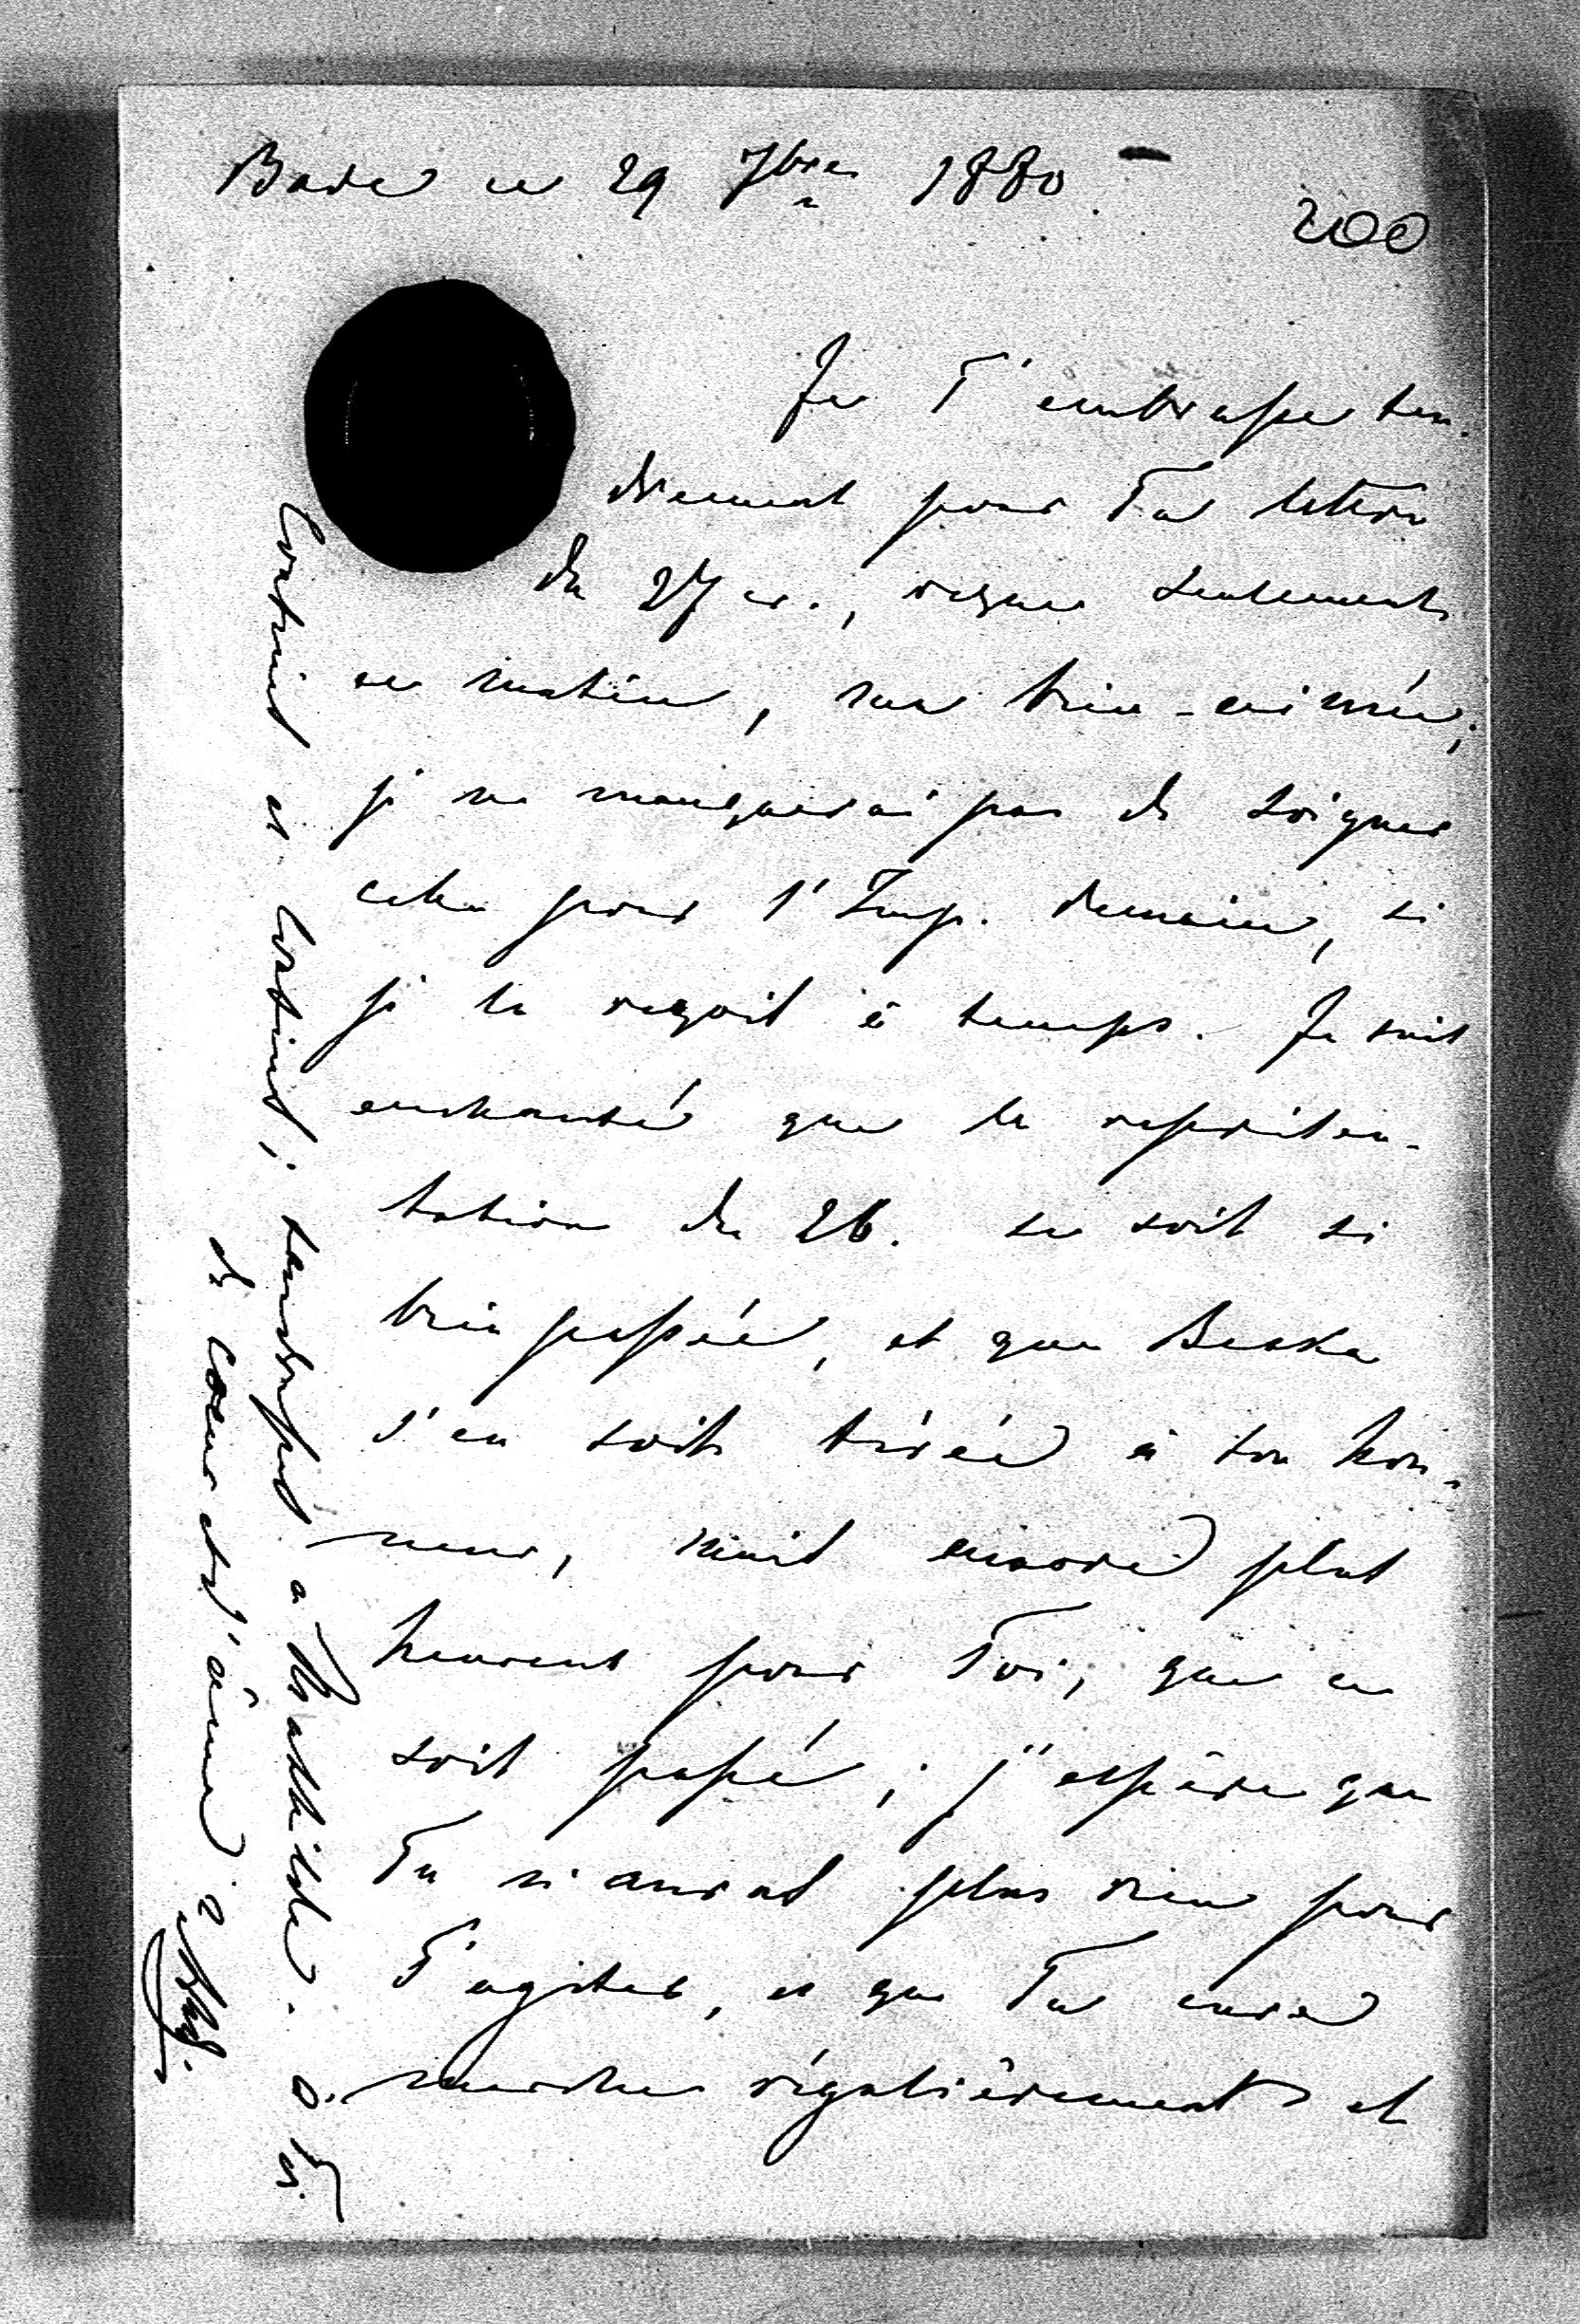 Bade ce 29 7bre 1880.
200
Je T'embrasse ten-
drement pour Ta lettre
du 27 cr., reçue seulement
ce matin, ma bien-aimée;
je ne manquerai pas de soigner
celle pour l'Imp. demain, si
je la reçoit à temps. Je suis
enchanté que la représen-
tation du 26. se soit si
bien passée, et que Beska
s'en soit tirée à son hon-
neur, mais encore plus
heureux pour Toi, que ce
soit passé; j'espère que
Tu n'auras plus rien pour
T'agiter, et que Ta cure
marche régulièrement et
tendresses à Mathilde. à Toi
de cœur et d'âme